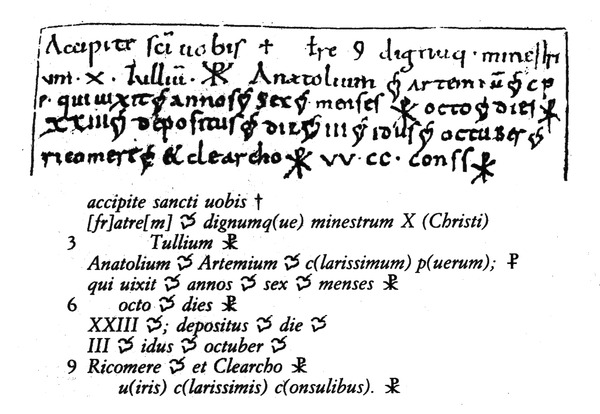 Accipite sc̄i uobis † tre ❦ dignuq · minestri
um · X · Tulliū · ☧ Anatolium ❦ Artemiū ❦ c p
P · qui uixit ❦ annos ❦ sex ❦ menses ☧ octo ❦ dies ☧
XXIII ❦ depositus ❦ die ❦ III ❦ idus ❦ octuber ❦
ricomere ❦ & clearcho ☧ VV · CC · conss ☧
accipite sancti uobis †
[fr]atre[m] ❦ dignumq(ue) minestrum X (Christi)
3 Tullium ☧
Anatolium ❦ Artemium ❦ c(larissimum) p(uerum); ⳨
qui uixit ❦ annos ❦ sex ❦ menses ☧
6 octo ❦ dies ☧
XXIII ❦; depositus ❦ die ❦
III ❦ idus ❦ octuber ❦
9 Ricomere ❦ et Clearcho ☧
u(iris) c(larissimis) c(onsulibus). ☧